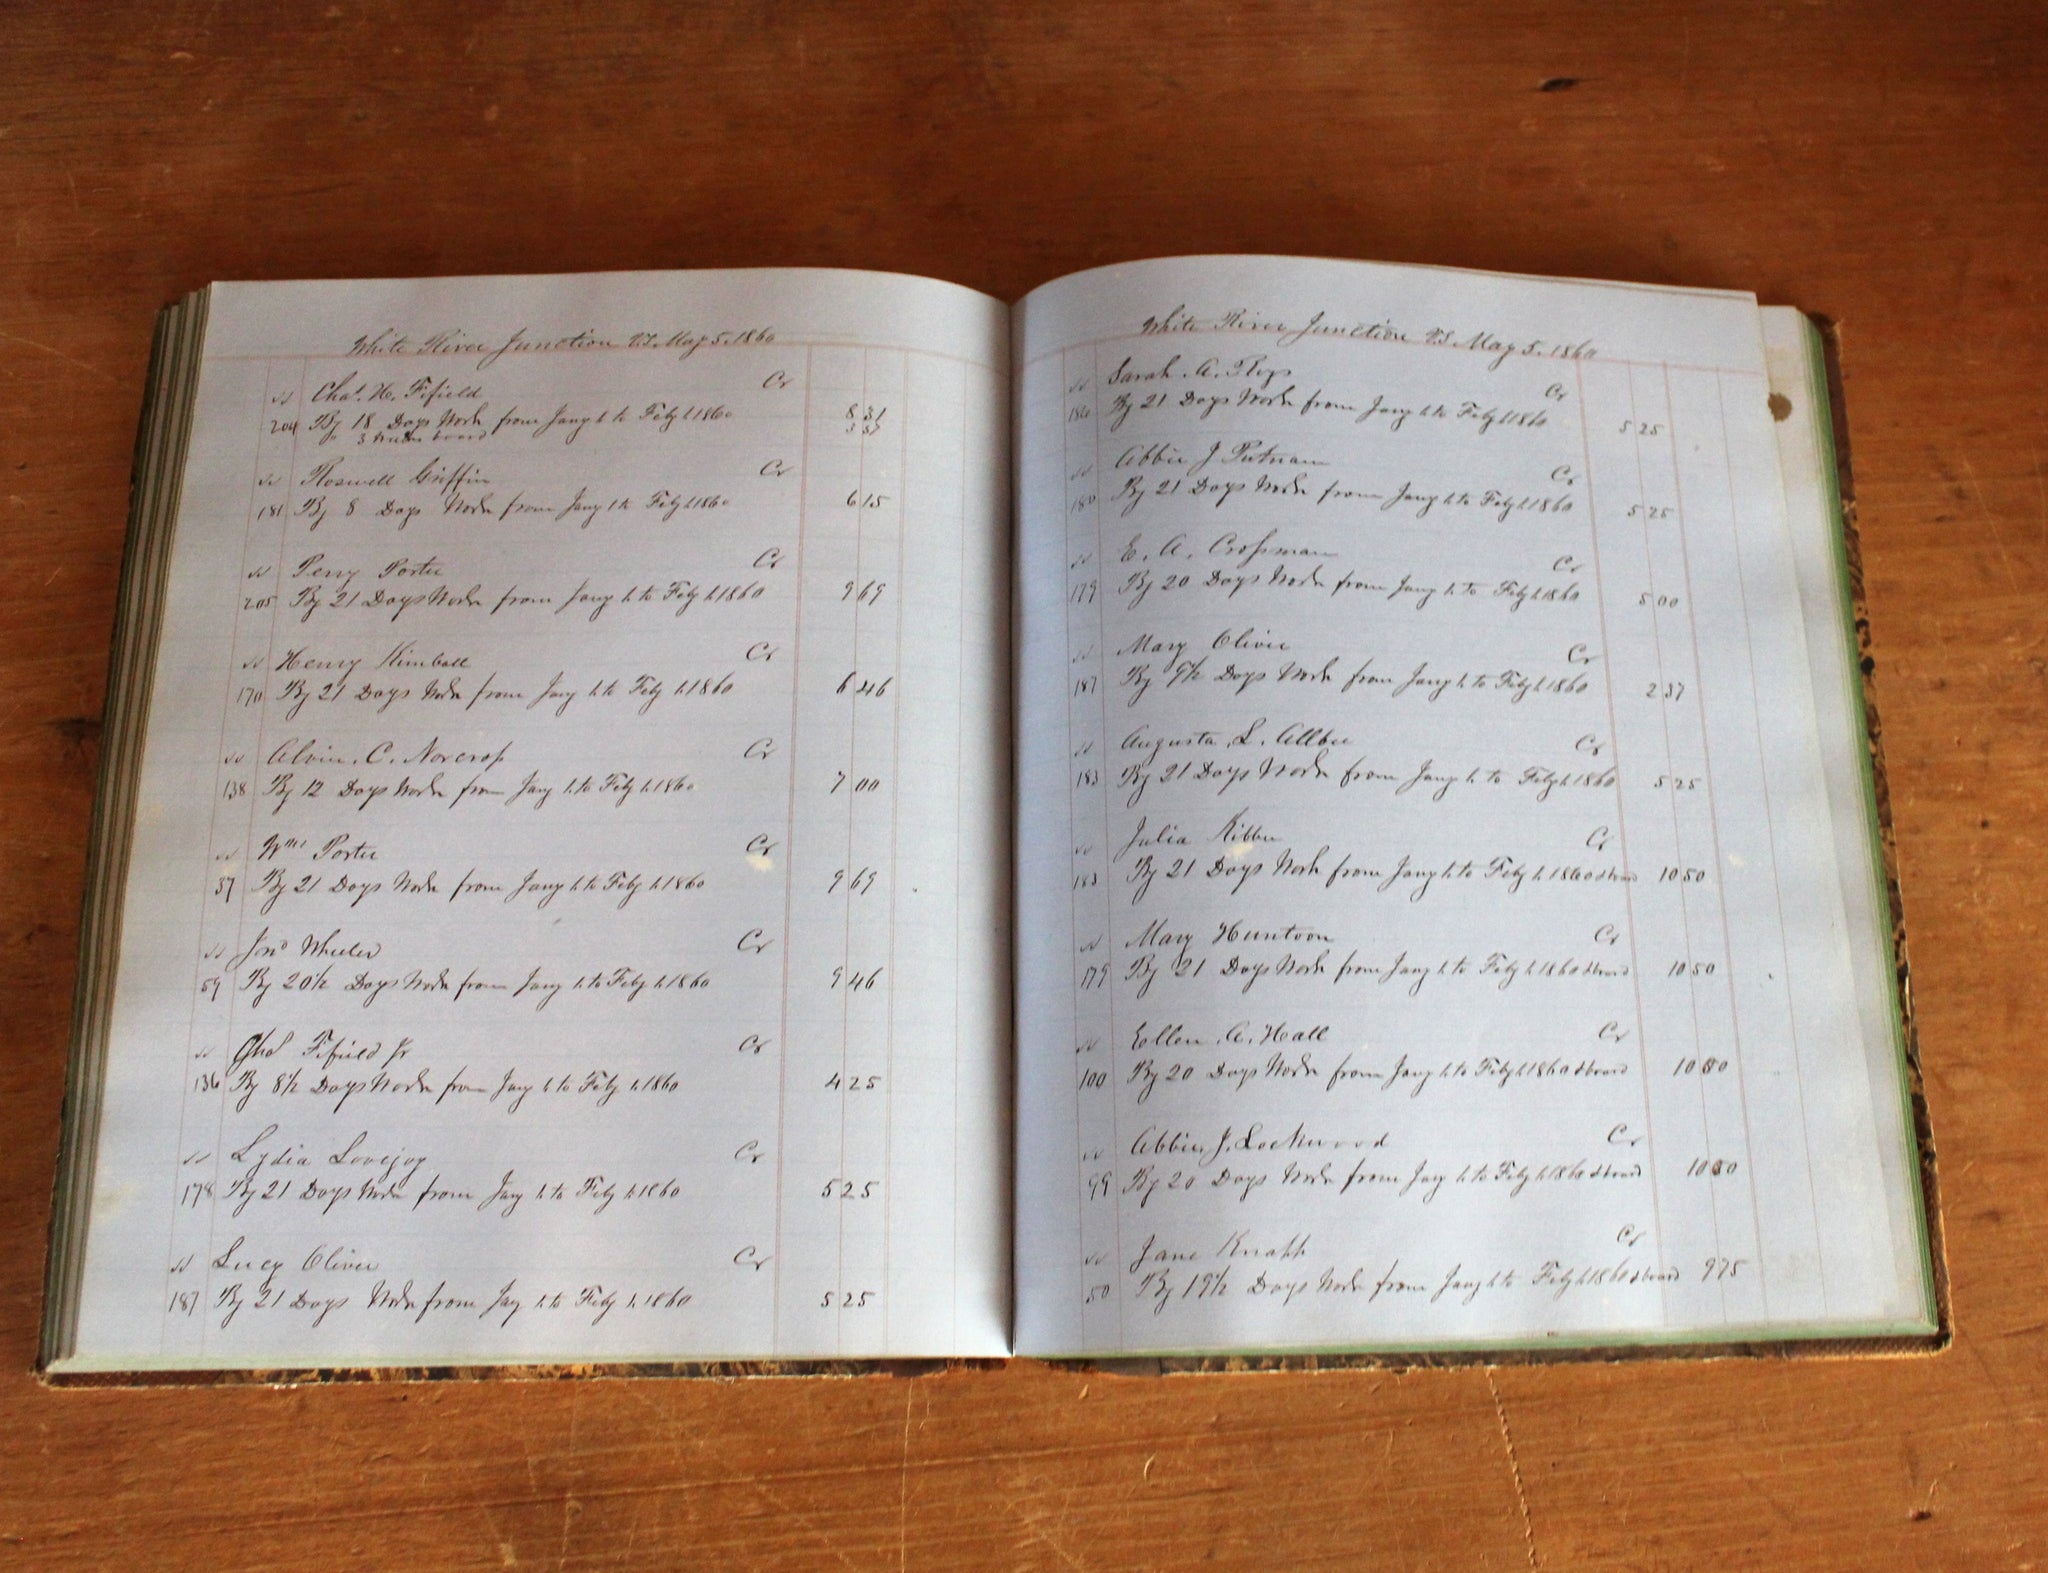 White River Junction Vt. May 5. 1860
Chas. H. Fifield Cr
204 By 18 Days Work from Jany 1 to Feby 1. 1860 8 31
" 3 board
Roswell Griffin Cr
181 By 8 Days Work from Jany 1 to Feby 1. 1860 6 15
Perry Porter Cr
205 By 21 Days Work from Jany 1. to Feby 1. 1860 9 69
Henry Kimball Cr
170 By 21 Days Work from Jany 1. to Feby 1. 1860 6 46
Alvin. C. Norcross Cr
138 By 12 Days Work from Jany 1. to Feby 1. 1860 7 00
Porter Cr
37 By 21 Days Work from Jany 1. to Feby 1. 1860 9 69
Jno Wheeler Cr
59 By 20 1/2 Days Work from Jany 1. to Feby 1. 1860 9 46
Chas Fifield Jr Cr
136 By 8 1/2 Days Work from Jany 1. to Feby 1. 1860 4 25
Lydia Lovejoy Cr
178 By 21 Days Work from Jany 1. to Feby 1. 1860 5 25
Lucy Oliver Cr
187 By 21 Days Work from Jany 1. to Feby 1. 1860 5 25
White River Junction Vt May 5. 1860
Sarah. A. Cr
186 By 21 Days Work from Jany 1. to Feby 1. 1860 5 25
Abbie J Putnam Cr
180 By 21 Days Work from Jany 1. to Feby 1. 1860 5 25
E. A. Crossman Cr
179 By 20 Days Work from Jany 1. to Feby 1. 1860 5 00
Mary Oliver Cr
187 By 9 1/2 Days Work from Jany 1. to Feby 1. 1860 2 37
Augusta. L. Allbee Cr
183 By 21 Days Work from Jany 1. to Feby 1. 1860 5 25
Julia Kibbee Cr
183 By 21 Days Work from Jany 1. to Feby 1. 1860 & board 10 50
Mary Huntoon Cr
179 By 21 Days Work from Jany 1. to Feby 1. 1860 & board 10 50
Ellen. A. Hall Cr
100 By 20 Days Work from Jany 1. to Feby 1. 1860 & board 10
Abbie. J. Lockwood Cr
99 By 20 Days Work from Jany 1. to Feby 1. 1860 & board 10
Jane Knapp Cr
50 By 19 1/2 Days Work from Jany 1 to Feby 1. 1860 & board 9 75